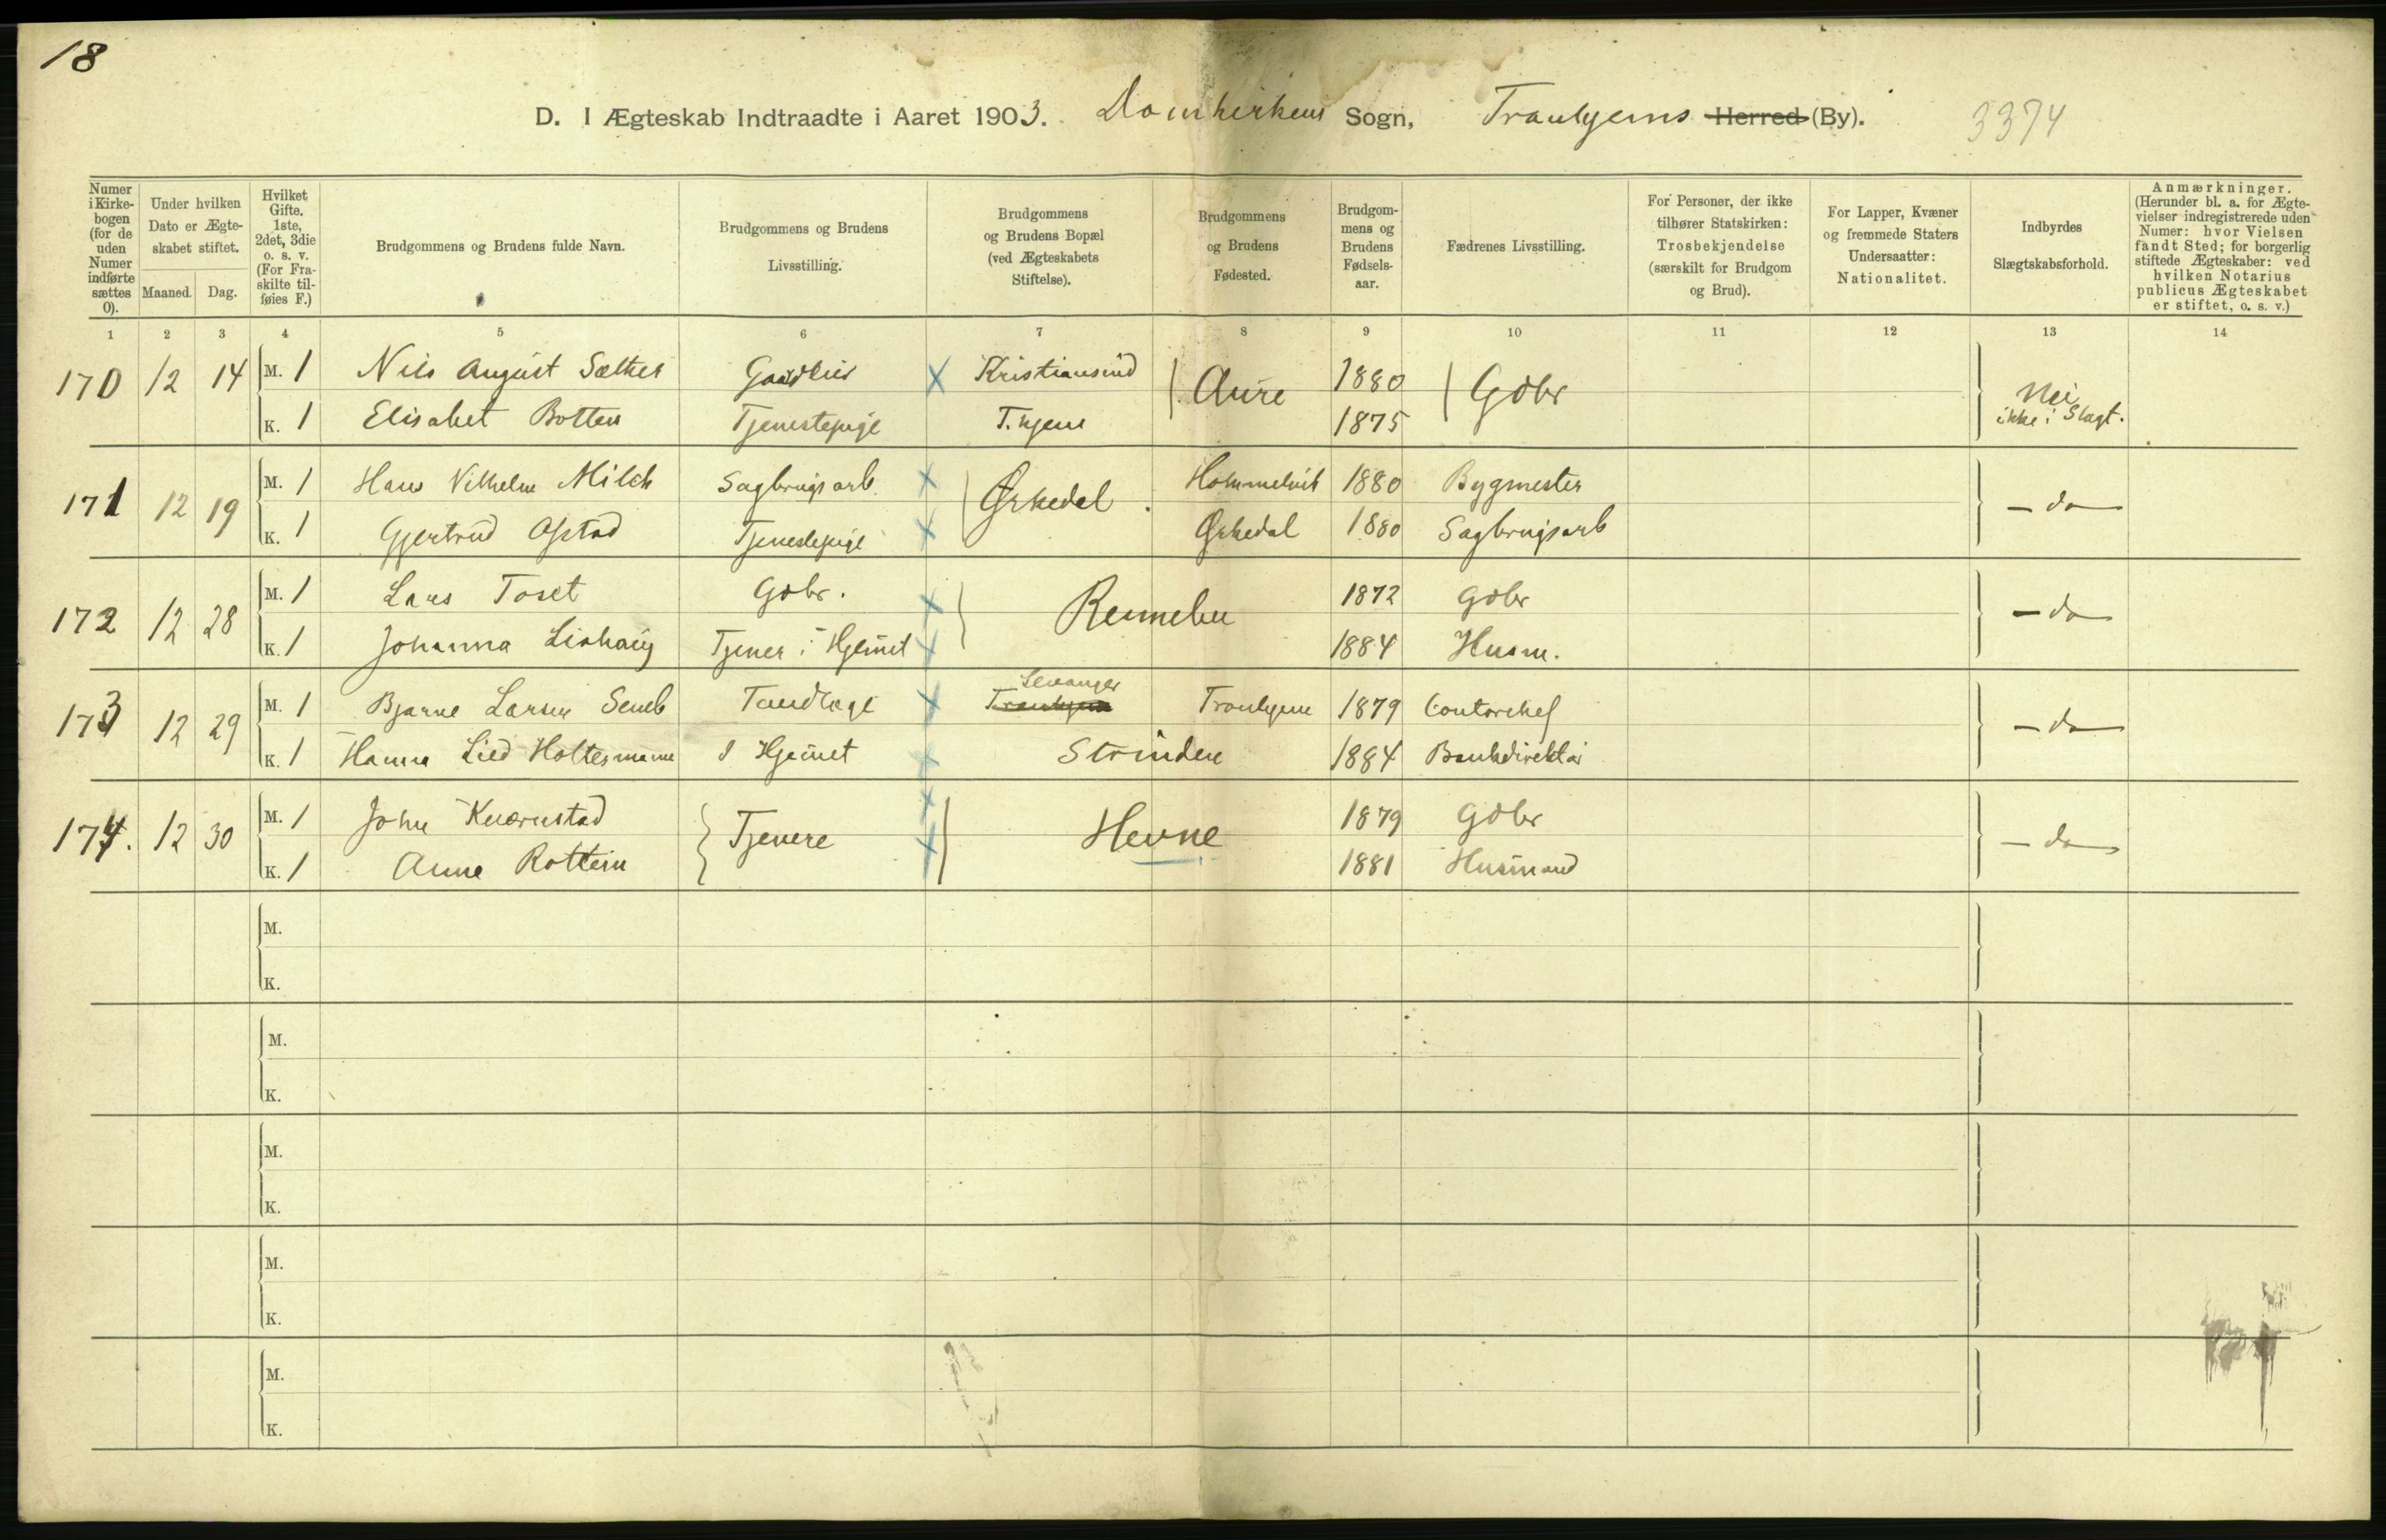 18
D. I Ægteskab Indtraadte i Aaret 1903. Domkirkens Sogn, Trondhjems Herred (By). 3374
Numer i Kirke-bogen (for de uden Numer indførte sættes 0).
Under hvilken Dato er Ægte-skabet stiftet.
Maaned. Dag.
Hvilket Gifte. 1ste, 2det, 3die o. s. v. (For Fra-skilte til-føies F.)
Brudgommens og Brudens fulde Navn.
Brudgommens og Brudens Livsstilling.
Brudgommens og Brudens Bopæl (ved Ægteskabets Stiftelse).
Brudgommens og Brudens Fødested.
Brudgom-mens og Brudens Fødsels-aar.
Fædrenes Livsstilling.
For Personer, der ikke tilhører Statskirken: Trosbekjendelse (særskilt for Brudgom og Brud).
For Lapper, Kvæner og fremmede Staters Undersaatter: Nationalitet.
Indbyrdes Slægtskabsforhold.
Anmærkninger. (Herunder bl. a. for Ægte-vielser indregistrerede uden Numer: hvor Vielsen fandt Sted; for borgerlig stiftede Ægteskaber: ved hvilken Notarius publicus Ægteskabet er stiftet, o. s. v.)
1 2 3 4 5 6 7 8 9 10 11 12 13 14
170 12 14 M. 1 Nils August Sæther Kristiansund Aure 1880 Gdbr Nei
K. 1 Elisabet Botten Tjenestepige T.hjem 1875 ikke i Slægt.
171 12 19 M. 1 Hans Vilhelm Milch Sagbrugsarb. Ørkedal Hommelvik 1880 Bygmester - do
K. 1 Gjertrud Opstad Tjenestepige Ørkedal 1880 Sagbrugsarb
172 12 28 M. 1 Lars Toset Gdbr. Rennebu 1872 Gdbr - do
K. 1 Johanna Lirhaug Tjener i Hjemmet 1884 Husm.
173 12 29 M. 1 Bjarne Larsen Semb Tandlæge Levanger Trondhjem Trondhjem 1879 Contorchef - do
K. 1 Hanna Lied Holtermann I Hjemmet Strinden 1884 Bankdirektør
174. 12 30 M. 1 John Kvernstad Tjenere Hevne 1879 Gdbr - do
K. 1 Anne Rottem 1881 Husmand
M.
K.
M.
K.
M.
K.
M.
K.
M.
K.